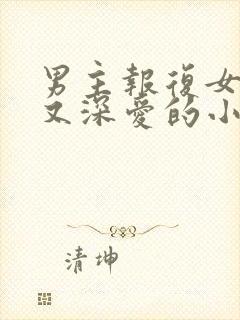 男主報復女
又深愛的小
清坤